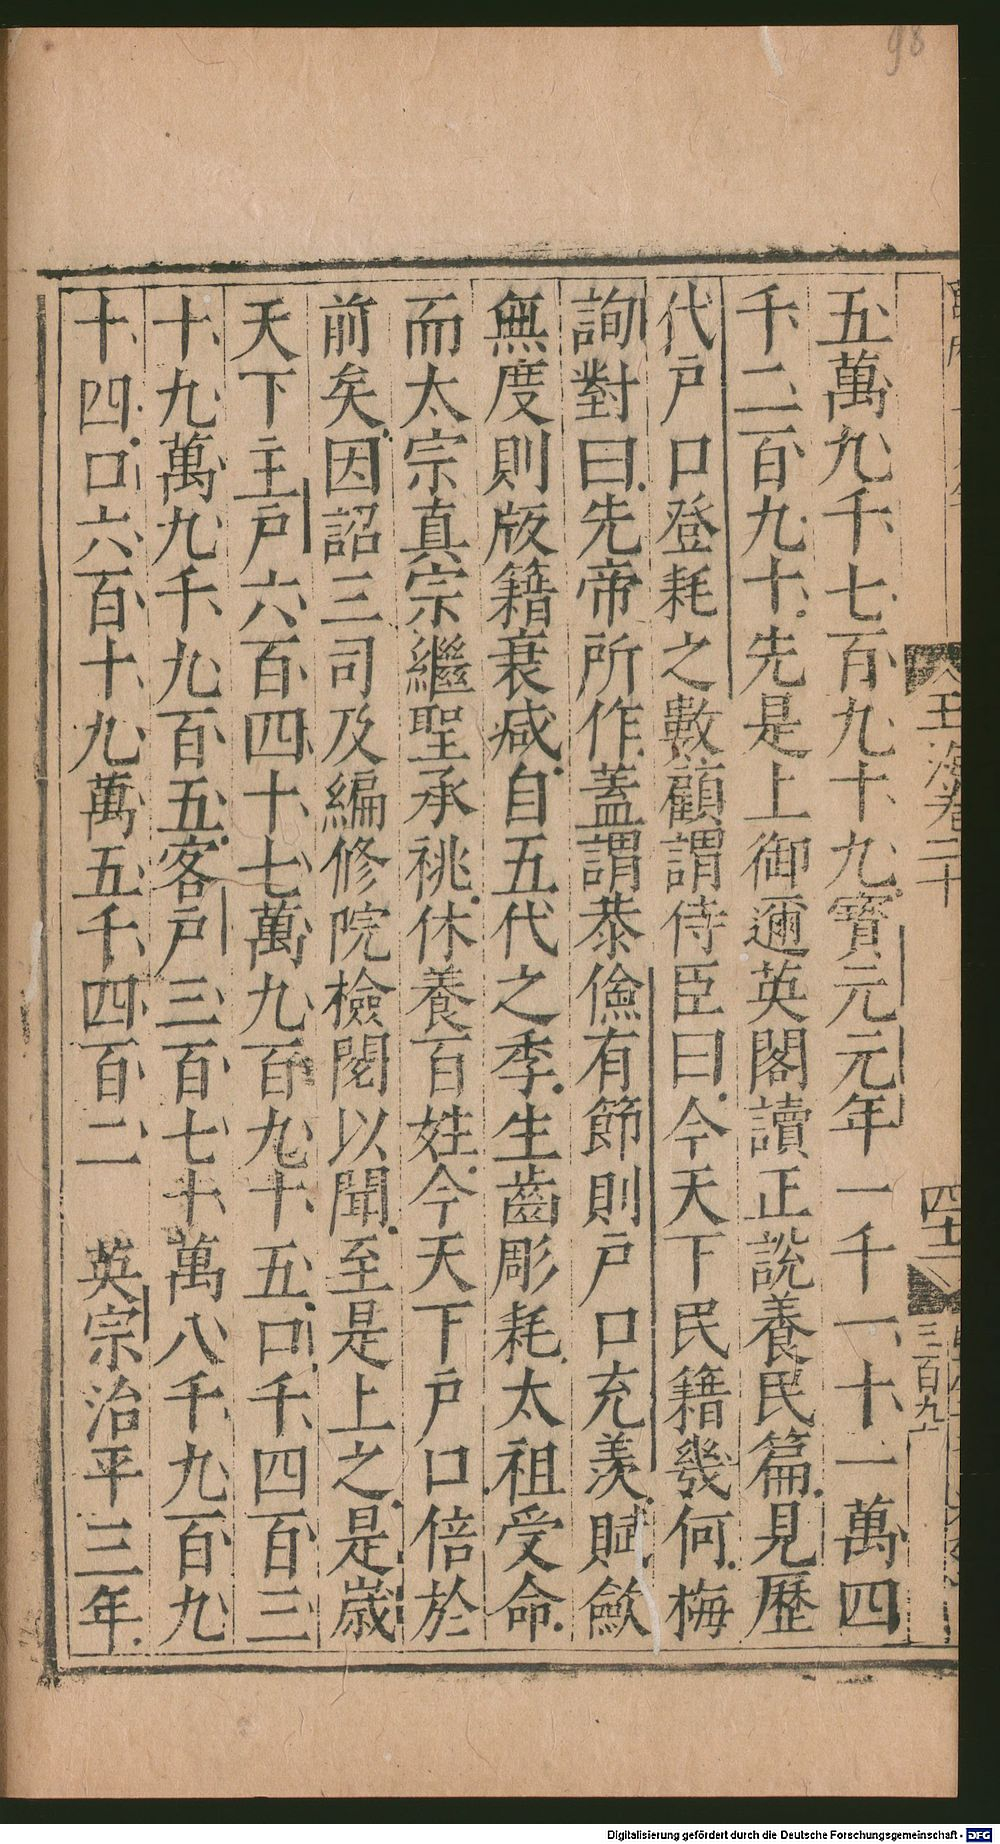 98
玉海卷二十
四十二
三百九十
五萬九千七百九十九寶元元年一千一十一萬四
千二百九十先是上御邇英閣讀正說養民篇見歷
代戶口登耗之數顧謂侍臣曰今天下民籍幾何梅
詢對曰先帝所作蓋謂恭儉有節則戶口充羨賦斂
無度則版籍衰减自五代之季生齒彫耗太祖受命
而太宗真宗繼聖承祧休養百姓今天下戶口倍於
前矣因詔三司及編修院檢閱以聞至是上之是歲
天下主戶六百四十七萬九百九十五口千四百三
十九萬九千九百五客戶三百七十萬八千九百九
十四口六百十九萬五千四百二　英宗治平三年
Digitalisierung gefördert durch die Deutsche Forschungsgemeinschaft - DFG